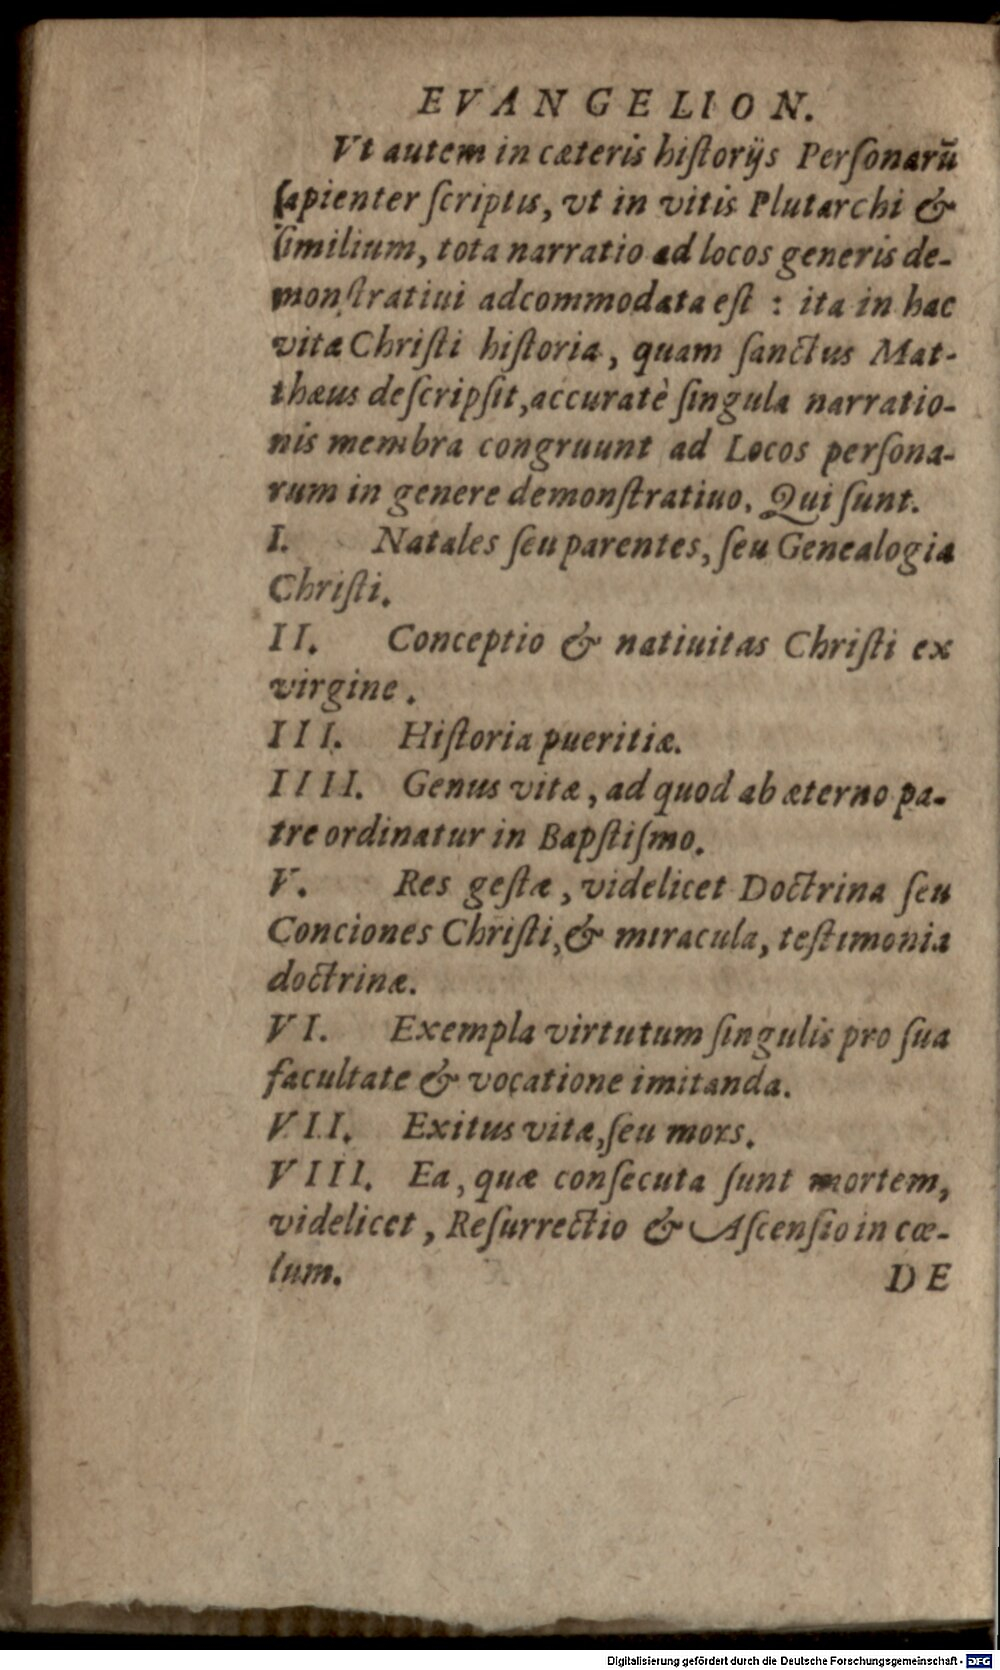 EVANGELION.
Vt autem in cæteris hiſtorijs Perſonarū
ſapienter ſcriptis, vt in vitis Plutarchi &
ſimilium, tota narratio ad locos generis de-
monſtratiui adcommodata eſt : ita in hac
vitæ Chriſti hiſtoria, quam ſanctus Mat-
thæus deſcripſit, accuratè ſingula narratio-
nis membra congruunt ad Locos perſona-
rum in genere demonſtratiuo. Qui ſunt.
I. Natales ſeu parentes, ſeu Genealogia
Chriſti.
II. Conceptio & natiuitas Chriſti ex
virgine.
III. Hiſtoria pueritiæ.
IIII. Genus vitæ, ad quod ab æterno pa-
tre ordinatur in Bapſtiſmo.
V. Res geſtæ, videlicet Doctrina ſeu
Conciones Chriſti, & miracula, teſtimonia
doctrinæ.
VI. Exempla virtutum ſingulis pro ſua
facultate & vocatione imitanda.
VII. Exitus vitæ, ſeu mors.
VIII. Ea, quæ conſecuta ſunt mortem,
videlicet, Reſurrectio & Aſcenſio in cœ-
lum.
DE
Digitalisierung gefördert durch die Deutsche Forschungsgemeinschaft - DFG